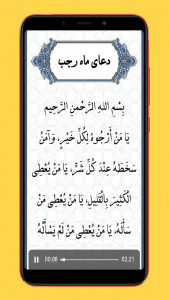 دعای ماه رجب
بِسْمِ اللهِ الرَّحْمنِ الرَّحیمِ
یَا مَنْ أَرْجُوهُ لِكُلِّ خَیْرٍ، وَآمَنُ
سَخَطَهُ عِنْدَ كُلِّ شَرٍّ، یَا مَنْ یُعْطِی
الْكَثِیرَ بِالْقَلِیلِ، یَا مَنْ یُعْطِی مَنْ
سَأَلَهُ، یَا مَنْ یُعْطِی مَنْ لَمْ یَسْأَلْهُ
00:08 02:21